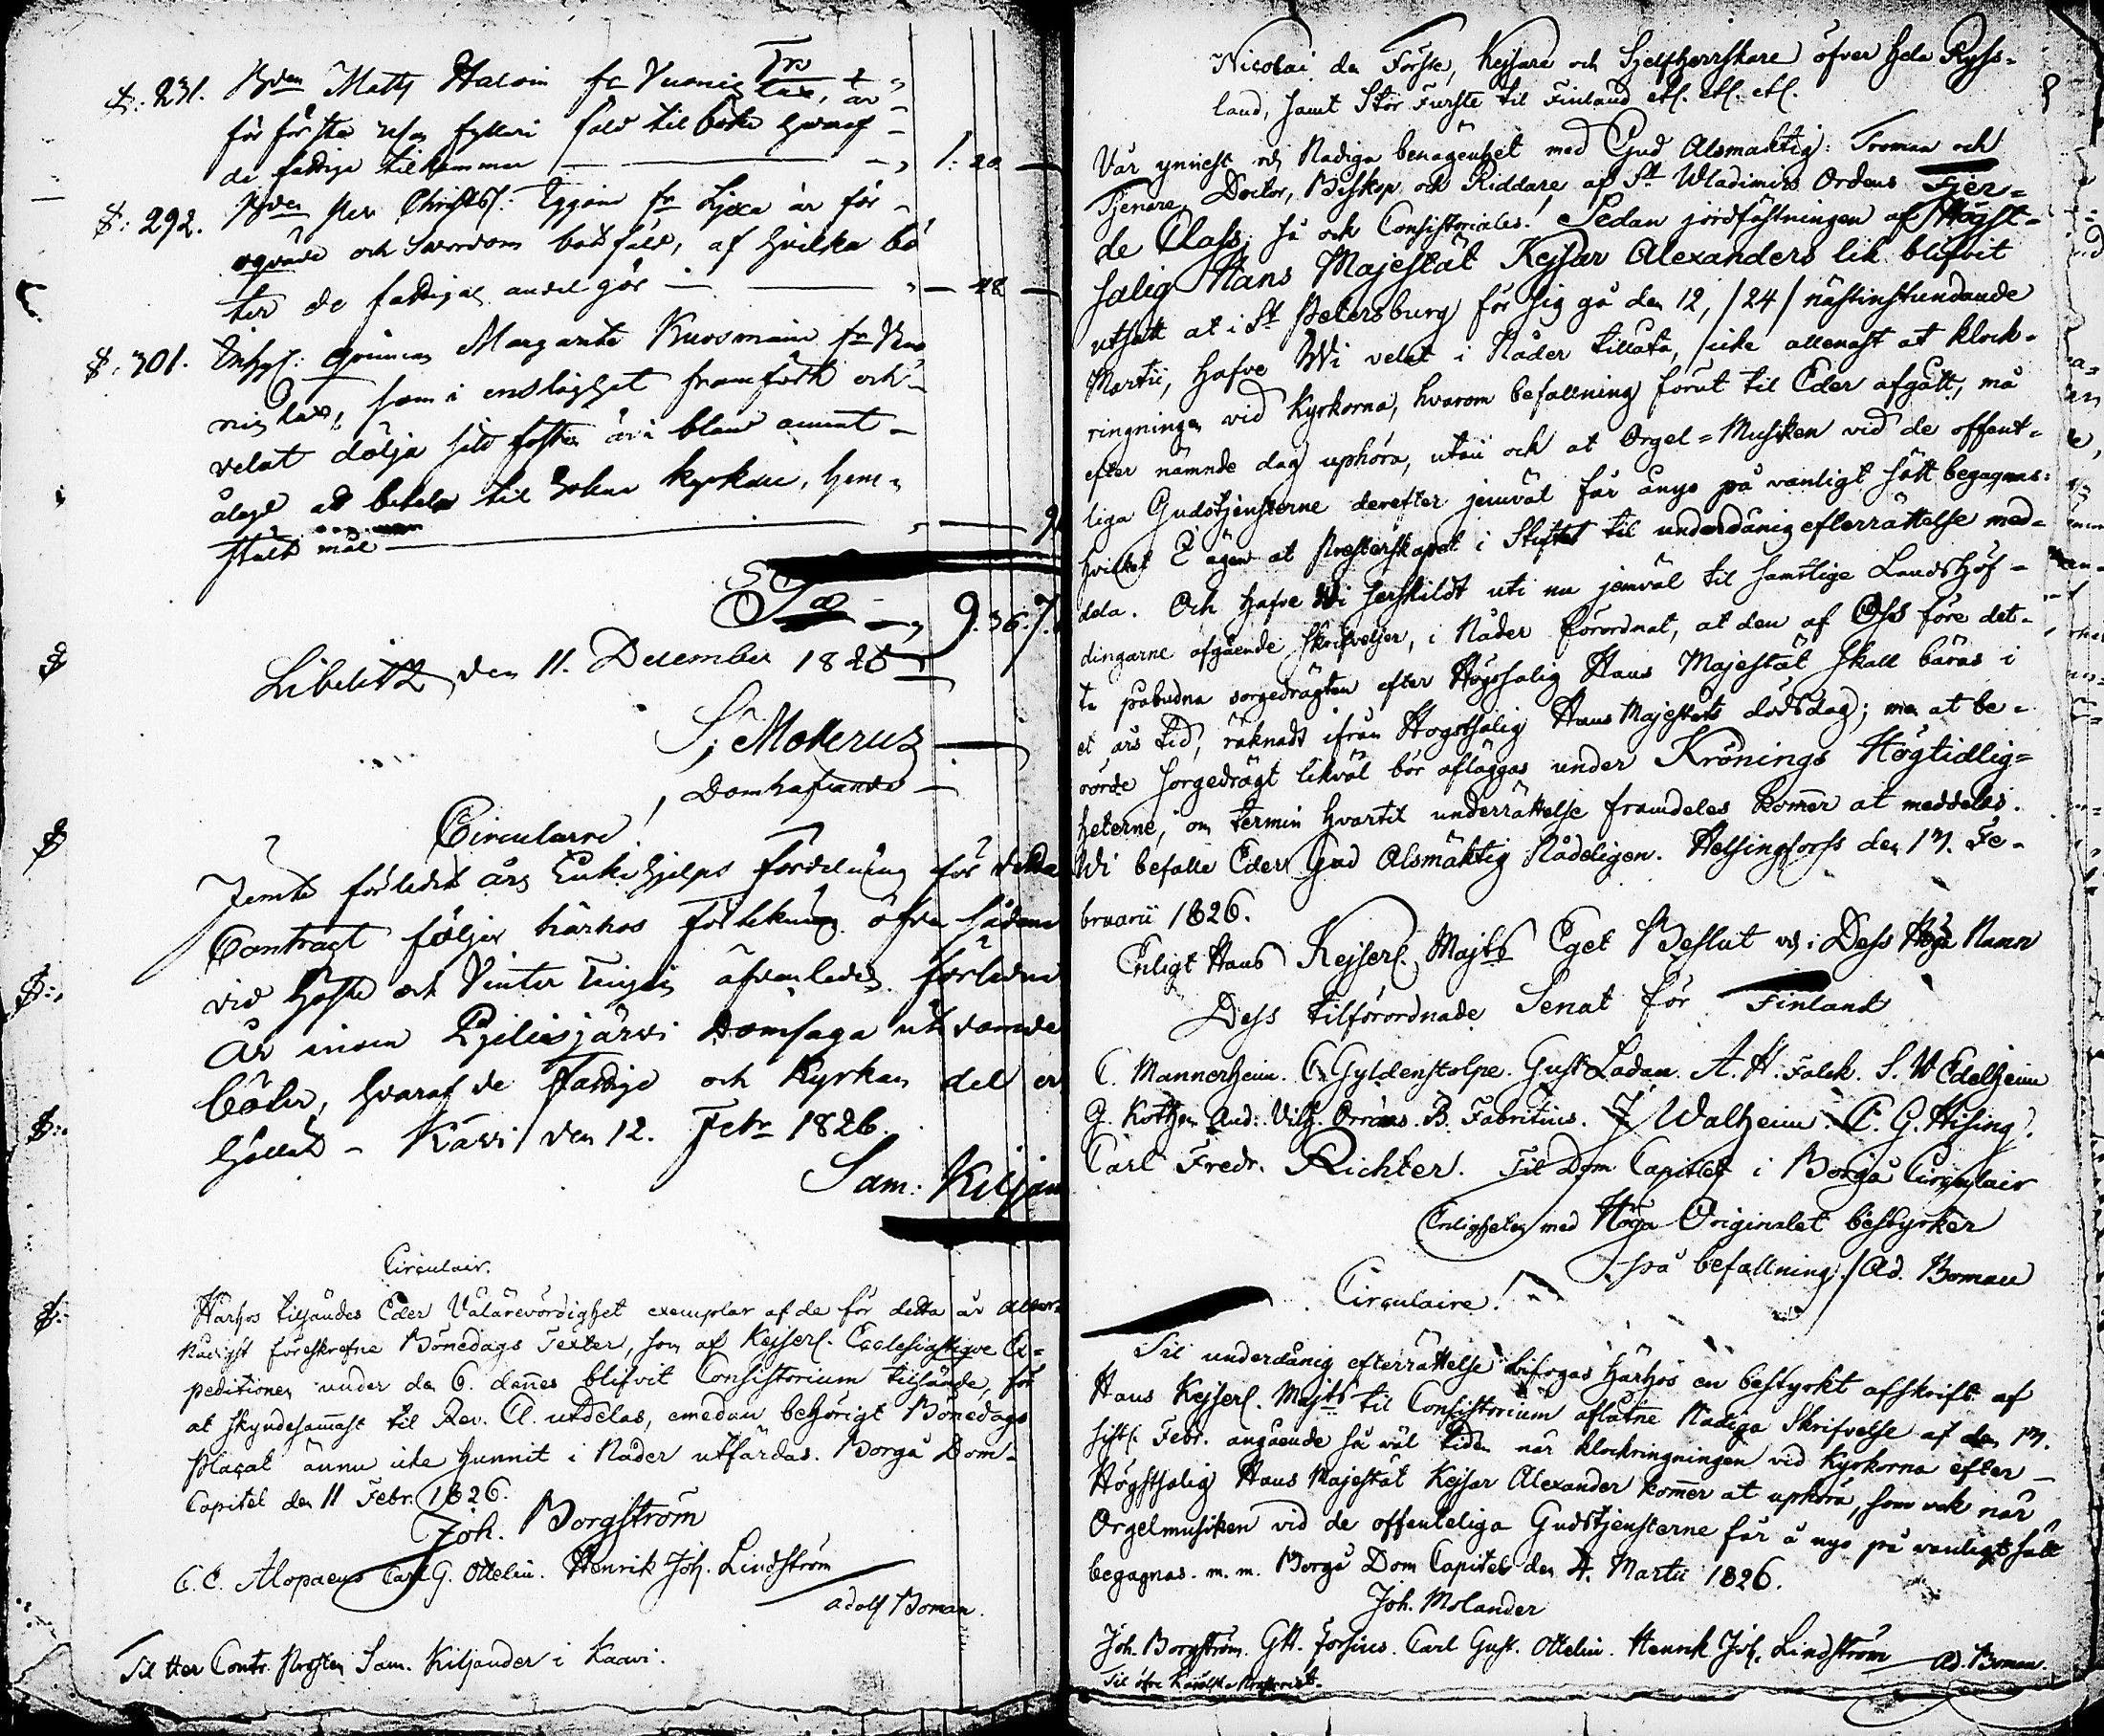 §: 231. Bden Matts Haloin fr Vuonis
tax, är
för första resan fylleri fäld til böter hvaraf
de fattige tilkommer — 1: 20 —
§: 292. Bden Per Christ: Eggoin fr är för
oqväde och svordom botfäld, af hvilka bö
ter de fattigas andel gör — 48 —
§: 301. Inhys: qvinnan Margareta Kuosmain fr Vuo
nislax, som i enslighet framfödt och
velat dölja sitt foster är i bland annat
ålagd at betala til Sokne kyrkan, hem
stälts mål
Sa — 9. 36. 7.
Libelitz den 11. December 1825
S. Mollerus
Domhafvande
Circulaire!
Jemte förledit års Enkehjelps Fördelning för detta
Contract följer härhos förtekning öfver sådana
vid Höste och Vinter Tingen äfvenledes förledne
År inom Pjelisjärvi Domsaga utdömde
böter, hvaraf de Fattige och Kyrkan del er
hållit - Kavi den 12. Febr 1826.
Sam: Kiljan
Circulair.
Härhos tilsändes Eder Välärevördighet exemplar af de för detta år aller
nådigst föreskrefne Bönedags Texter, som af Kejserl. Ecclesiastique Ex-
peditionen under den 6. dennes blifvit Consistorium tilsände, för
at skyndesammast til Rev. Cl. utdelas, emedan behörigt Bönedags
Placat ännu icke hunnit i Nåder utfärdas. Borgå Dom-
Capitel den 11 Febr. 1826.
Joh. Borgström
C. C. Alopaeus Carl G. Ottelin. Henrik Joh. Lindström
Adolf Boman.
Til Herr Contr. Prosten Sam. Kiljander i Kaavi.
Nicolai den Förste, Kejsare och Sjelfherrskare öfver hela Ryss-
land, samt Stor Furste til Finland etc. etc. etc.
Vår ynnest och Nådiga benägenhet med Gud Alsmäktig: Troman och
Tjenare, Doctor, Biskop och Riddare af St Wladimirs Ordens Fjer-
de Class, så ock Consistoriales! Sedan jordfästningen af Högst-
salig Hans Majestät Kejsar Alexanders lik blifvit
utsatt at i St Petersburg för sig gå den 12, /24/ nästinstundande
Martii, hafve Wi velat i Nåder tillåta, icke allenast at klock-
ringningen vid Kyrkorna, hvarom befallning förut til Eder afgått, må
efter nämnde dag uphöra, utan ock at Orgel-Musiken vid de offent-
liga Gudstjensterne derefter jemväl får ånyo på vanligt sätt begagnas:
hvilket I ägen at Presterskapet i Stiftet til underdånig efterrättelse med-
dela. Och hafve Wi serskildt uti nu jemväl til samtlige Landshöf-
dingarne afgående skrifvelser, i Nåder förordnat, at den af Oss före det-
ta påbudna sorgedrägten efter Högstsalig Hans Majestät skall bäras i
et års tid, räknadt ifrån Högstsalig Hans Majestäts dödsdag; men at be-
rörde sorgedrägt likväl bör afläggas under Krönings Högtidlig-
heterne, om termin hvartil underrättelse framdeles kommer at meddelas.
Wi befalle Eder Gud Alsmäktig Nådeligen. Helsingfors den 17. Fe-
bruarii 1826.
Enligt Hans Kejserl. Majts Eget Beslut och i Dess Höga Namn
Dess tilförordnade Senat för Finland
C. Mannerheim. C. Gyldenstolpe. Gust Ladau. A. H. Falck. S. W Edelheim
G. Kothen And: Vilh. Orræus. B. Fabritius. J Walheim. C. G. Hising.
Carl Fredr. Richter. Til Dom Capitlet i Borgå Circulair
Enligheten med Höga Originalet bestyrker
på befallning /Ad. Boman
Circulaire!
Til underdånig efterrättelse bifogas härhos en bestyrkt afskrift af
Hans Kejserl. Majts til Consistorium aflåtne Nådiga Skrifvelse af den 17.
sistl. Febr. angående så väl tiden när klockringningen vid Kyrkorna efter
Högstsalig Hans Majestät Kejsar Alexander kommer at uphöra, som ock när
Orgelmusiken vid de offenteliga Gudstjensterne får å nyo på vanligt sätt
begagnas. m. m. Borgå Dom Capitel den 4. Martii 1826.
Joh. Molander
Joh. Borgström. GH. Forsius. Carl Gust. Ottelin. Henrik Joh. Lindström Ad. Boman.
Til öfre Karelska Prosteriet.